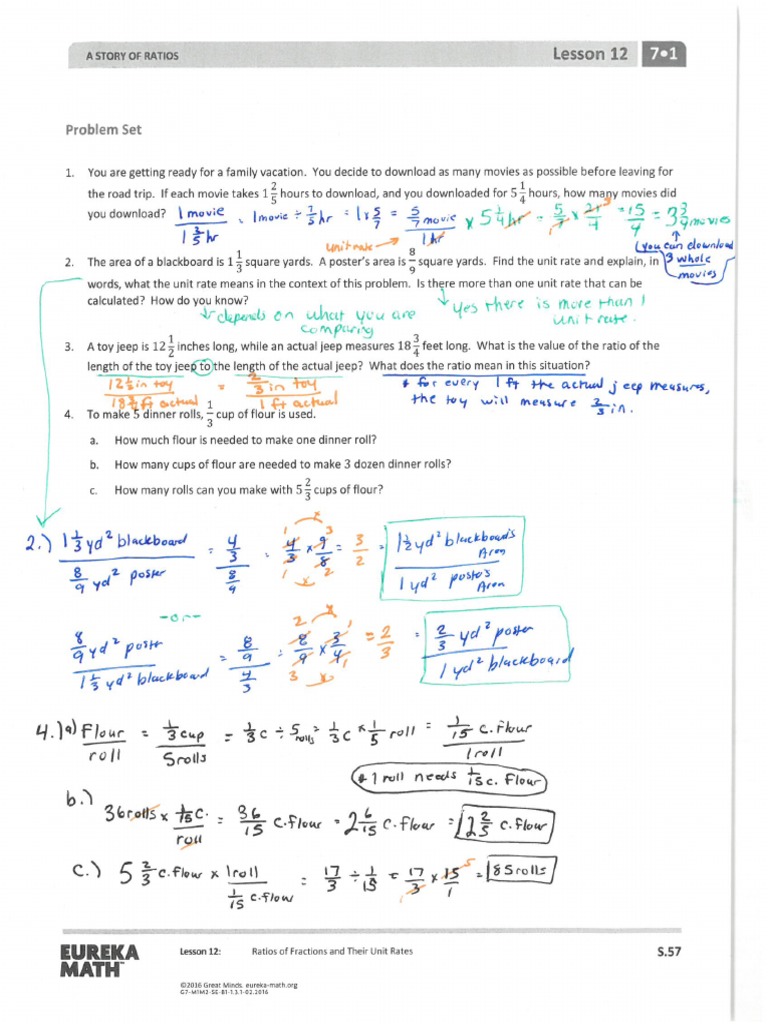 A STORY OF RATIOS
Lesson 12 7•1
Problem Set
1. You are getting ready for a family vacation. You decide to download as many movies as possible before leaving for
the road trip. If each movie takes 1 2/5 hours to download, and you downloaded for 5 1/4 hours, how many movies did
you download?
1 movie / 1 2/5 hr , 1 movie ÷ 7/5 hr = 1 x 5/7 = 5/7 movie / 1 hr x 5 1/4 hr = 5/7 x 21/4 = 15/4 = 3 3/4 movies
unit rate →
(you can download
3 whole
movies)
2. The area of a blackboard is 1 1/3 square yards. A poster's area is 8/9 square yards. Find the unit rate and explain, in
words, what the unit rate means in the context of this problem. Is there more than one unit rate that can be
calculated? How do you know?
yes there is more than 1
unit rate.
depends on what you are
comparing
3. A toy jeep is 12 1/2 inches long, while an actual jeep measures 18 3/4 feet long. What is the value of the ratio of the
length of the toy jeep to the length of the actual jeep? What does the ratio mean in this situation?
12 1/2 in toy / 18 3/4 ft actual = 2/3 in toy / 1 ft actual
* for every 1 ft the actual jeep measures,
the toy will measure 2/3 in.
4. To make 5 dinner rolls, 1/3 cup of flour is used.
a. How much flour is needed to make one dinner roll?
b. How many cups of flour are needed to make 3 dozen dinner rolls?
c. How many rolls can you make with 5 2/3 cups of flour?
2.) 1 1/3 yd² blackboard / 8/9 yd² poster = 4/3 / 8/9 = 4/3 x 9/8 = 3/2 = 1 1/2 yd² blackboard's Area / 1 yd² poster's Area
-or-
8/9 yd² poster / 1 1/3 yd² blackboard = 8/9 / 4/3 = 8/9 x 3/4 = 2/3 = 2/3 yd² poster / 1 yd² blackboard
4.) a) Flour / roll = 1/3 cup / 5 rolls = 1/3 c ÷ 5 rolls = 1/3 c x 1/5 roll = 1/15 c. flour / 1 roll
* 1 roll needs 1/15 c. flour
b.) 36 rolls x 1/15 c. / roll = 36/15 c. flour = 2 6/15 c. flour = 2 2/5 c. flour
c.) 5 2/3 c. flour x 1 roll / 1/15 c. flour = 17/3 ÷ 1/15 = 17/3 x 15/1 = 85 rolls
EUREKA
MATH™
Lesson 12: Ratios of Fractions and Their Unit Rates
S.57
©2016 Great Minds. eureka-math.org
G7-M1M2-SE-B1-1.3.1-02.2016